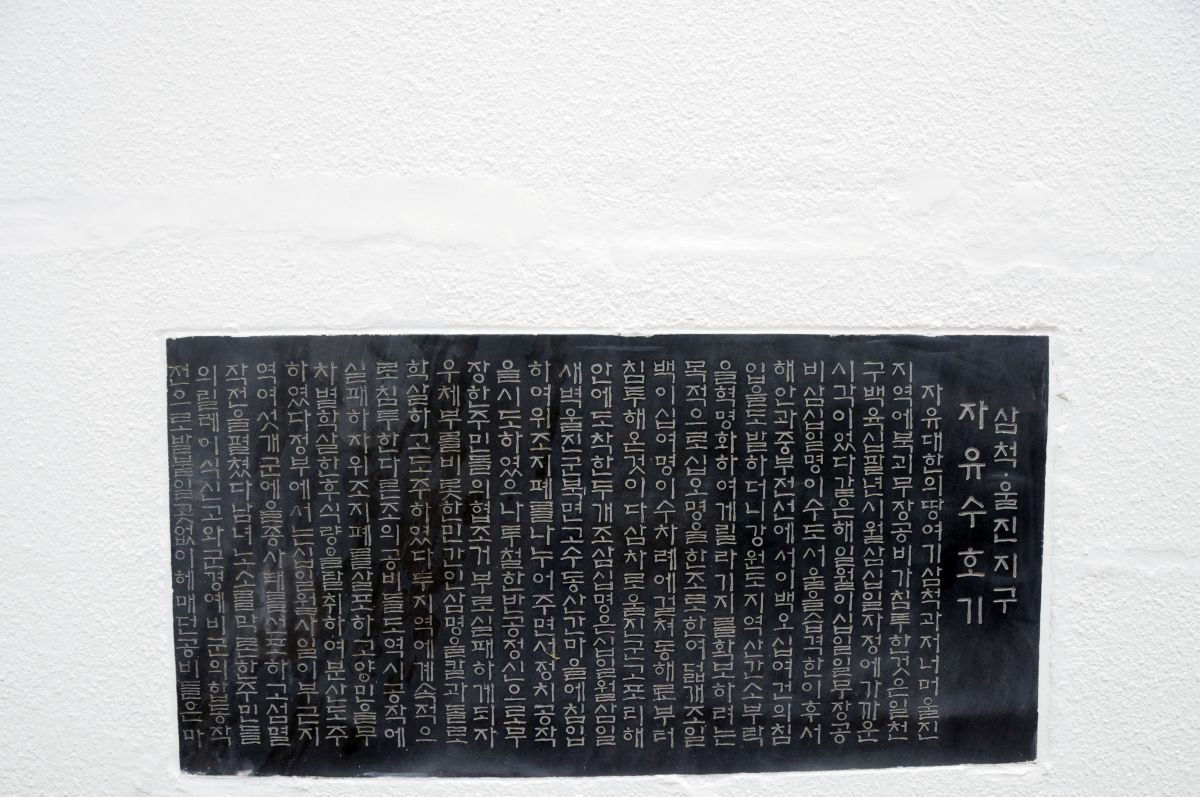 삼척·울진지구
자유수호기
자유대한의땅여기삼척과저너머울진
지역에북괴무장공비가침투한것은일천
구백육십팔년시월삼십일자정에가까운
시각이었다같은해일월이십일일무장공
비삼십일명이수도서울을습격한이후서
해안과중부전선에서이백오십여건의침
입을도발하더니강원도지역산간소부락
을혁명화하여게릴라기지를확보하려는
목적으로십오명을한조로한여덟개조일
백이십여명이수차례에걸쳐동해로부터
침투해온것이다삼차로울진군고포리해
안에도착한두개조삼십명은십일월삼일
새벽울진군북면고수동산간마을에침입
하여위조지폐를나누어주면서정치공작
을시도하였으나투철한반공정신으로무
장한주민들의협조거부로실패하게되자
우체부를비롯한민간인삼명을칼과돌로
학살하고도주하였다두지역에계속적으
로침투한다른조의공비들도역시공작에
실패하자위조지폐를살포하고양민을무
차별학살한후식량을탈취하여분산도주
하였다정부에서는십일월사일이부근지
역여섯개군에을종사태를선포하고섬멸
작전을펼쳤다남녀노소를막론한주민들
의릴레이식신고와군경예비군의합동작
전으로발붙일곳없이헤매던공비들은마